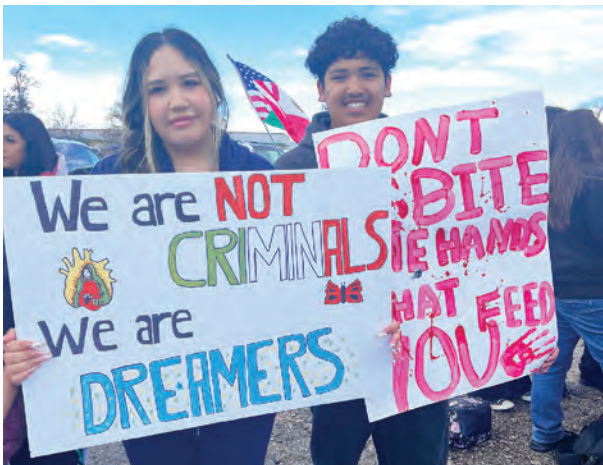 We are NOT
CRIMINALS
We are
DREAMERS
DONT
BITE
HANDS
FEED
YOU